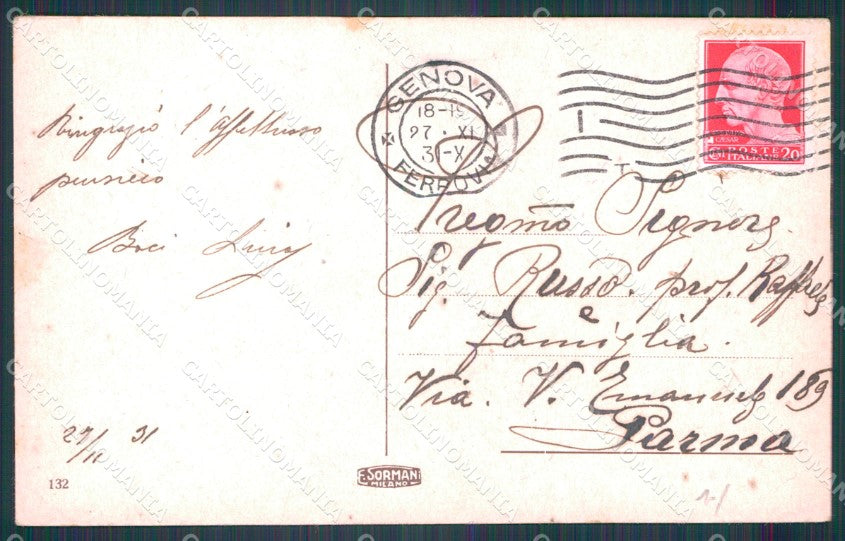 Ringrazio l'affettuoso
pensiero
Baci Luisa
27/11 31
132
F. SORMANI
MILANO
GENOVA
18-19
27 · XI
31-X
FERROVIA
CAESAR
POSTE
ITALIANE 20
Pregmo Signore
Sig. Russo. prof. Raffaele
e
famiglia.
Via. V. Emanuele 189
Parma
CARTOLINOMANIA